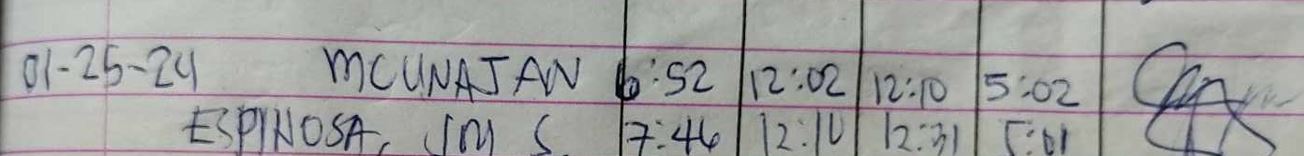 01-25-24 MCUNAJAN 6:52 12:02 12:10 5:02
ESPINOSA, JM S. 7:46 12:10 12:31 5:01